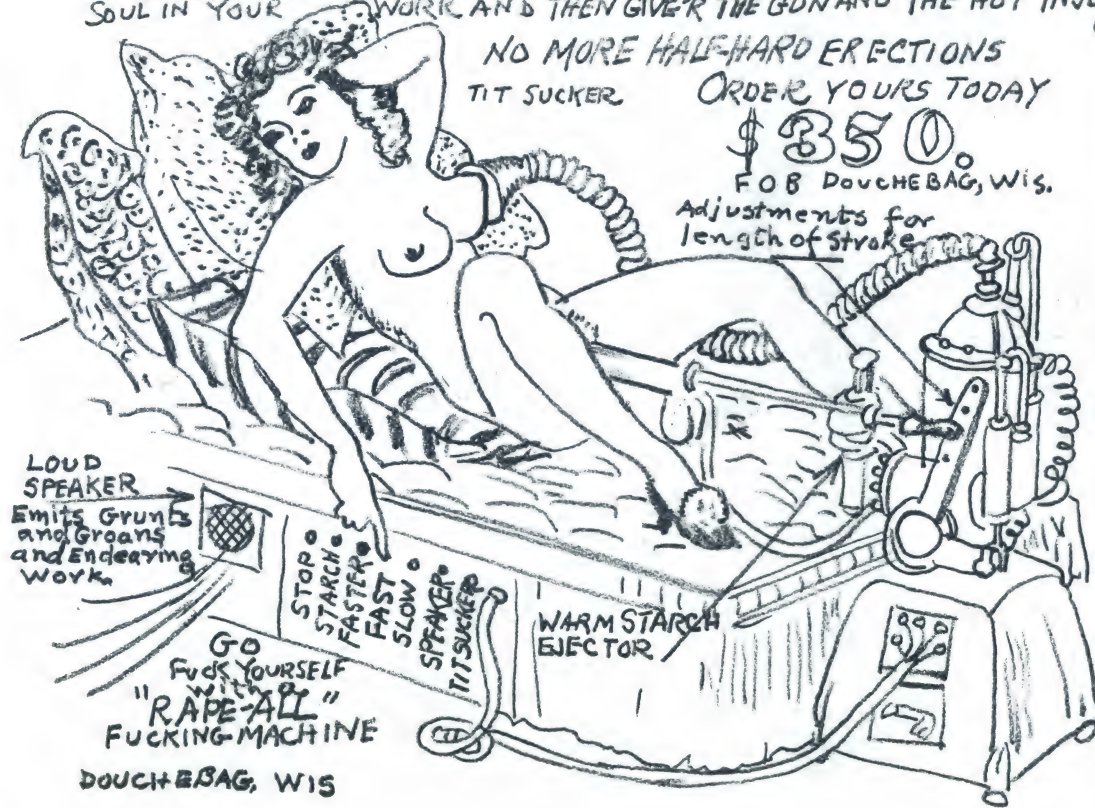 SOUL IN YOUR WORK AND THEN GIVE'R THE GUN AND THE HOT
NO MORE HALF-HARD ERECTIONS
TIT SUCKER
ORDER YOURS TODAY
$350.
FOB DOUCHEBAG, Wis.
Adjustments for
length of stroke
LOUD
SPEAKER
Emits Grunts
and Groans
and Endearing
Work.
STOP
STARCH
FASTER
FAST
SLOW
SPEAKER
TITSUCKER
WARM STARCH
EJECTOR
GO
FUCK YOURSELF
with a
"RAPE-ALL"
FUCKING MACHINE
DOUCHEBAG, WIS